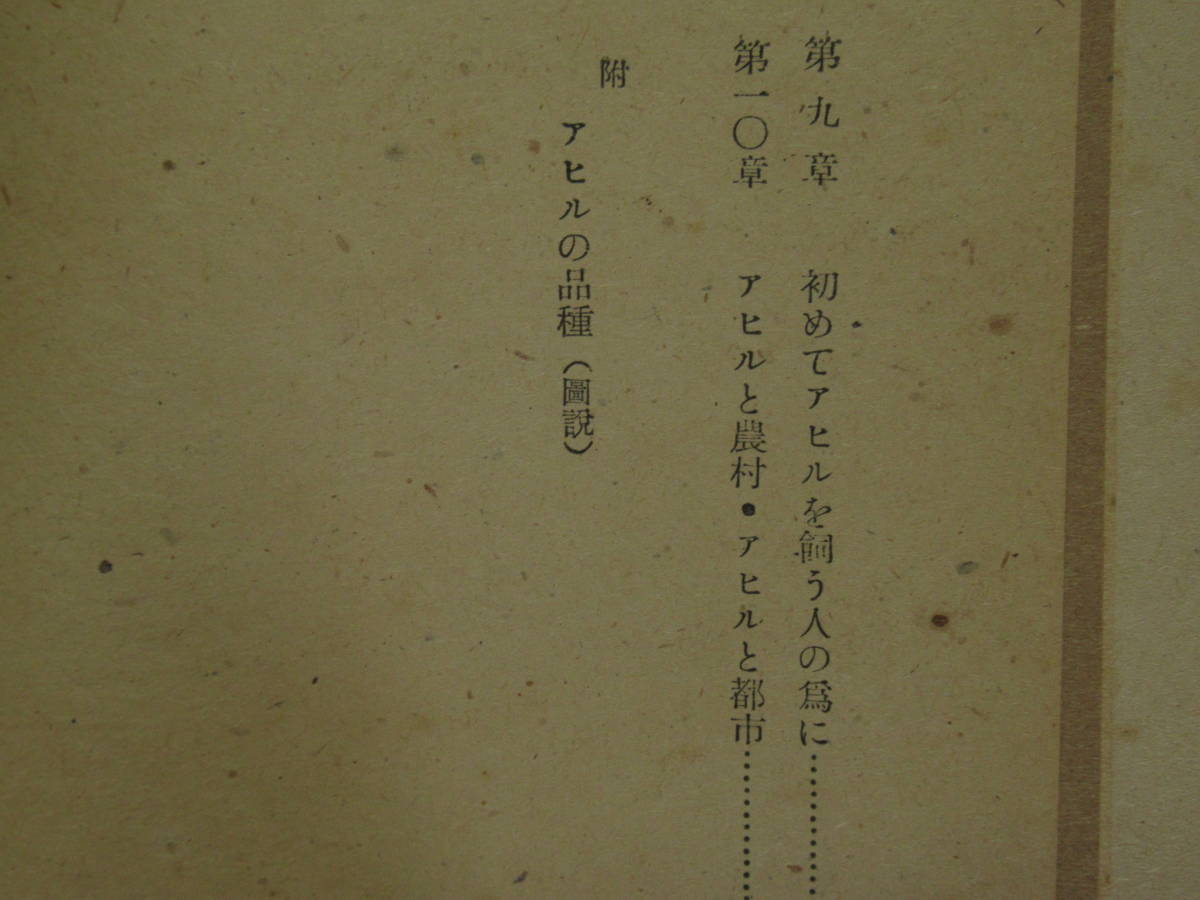 第九章 初めてアヒルを飼う人の爲に…………
第一〇章 アヒルと農村・アヒルと都市…………
附
アヒルの品種(圖說)